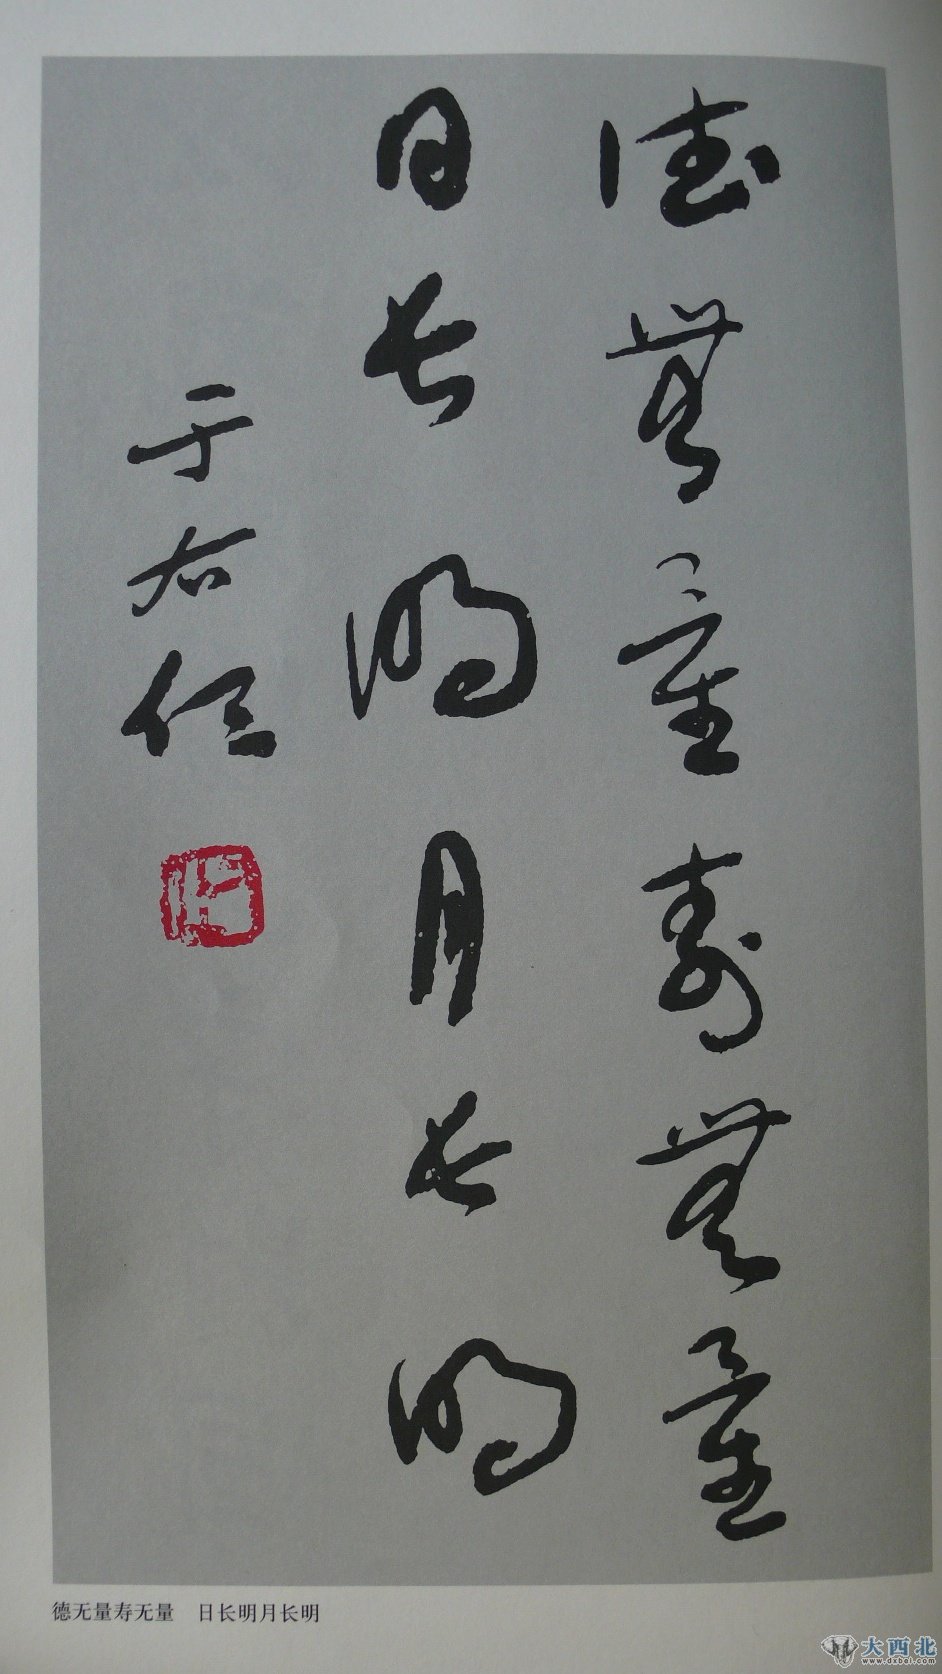 德無量壽無量
日長明月長明
于右任
德无量寿无量　日长明月长明
大西北
www.dxbei.com